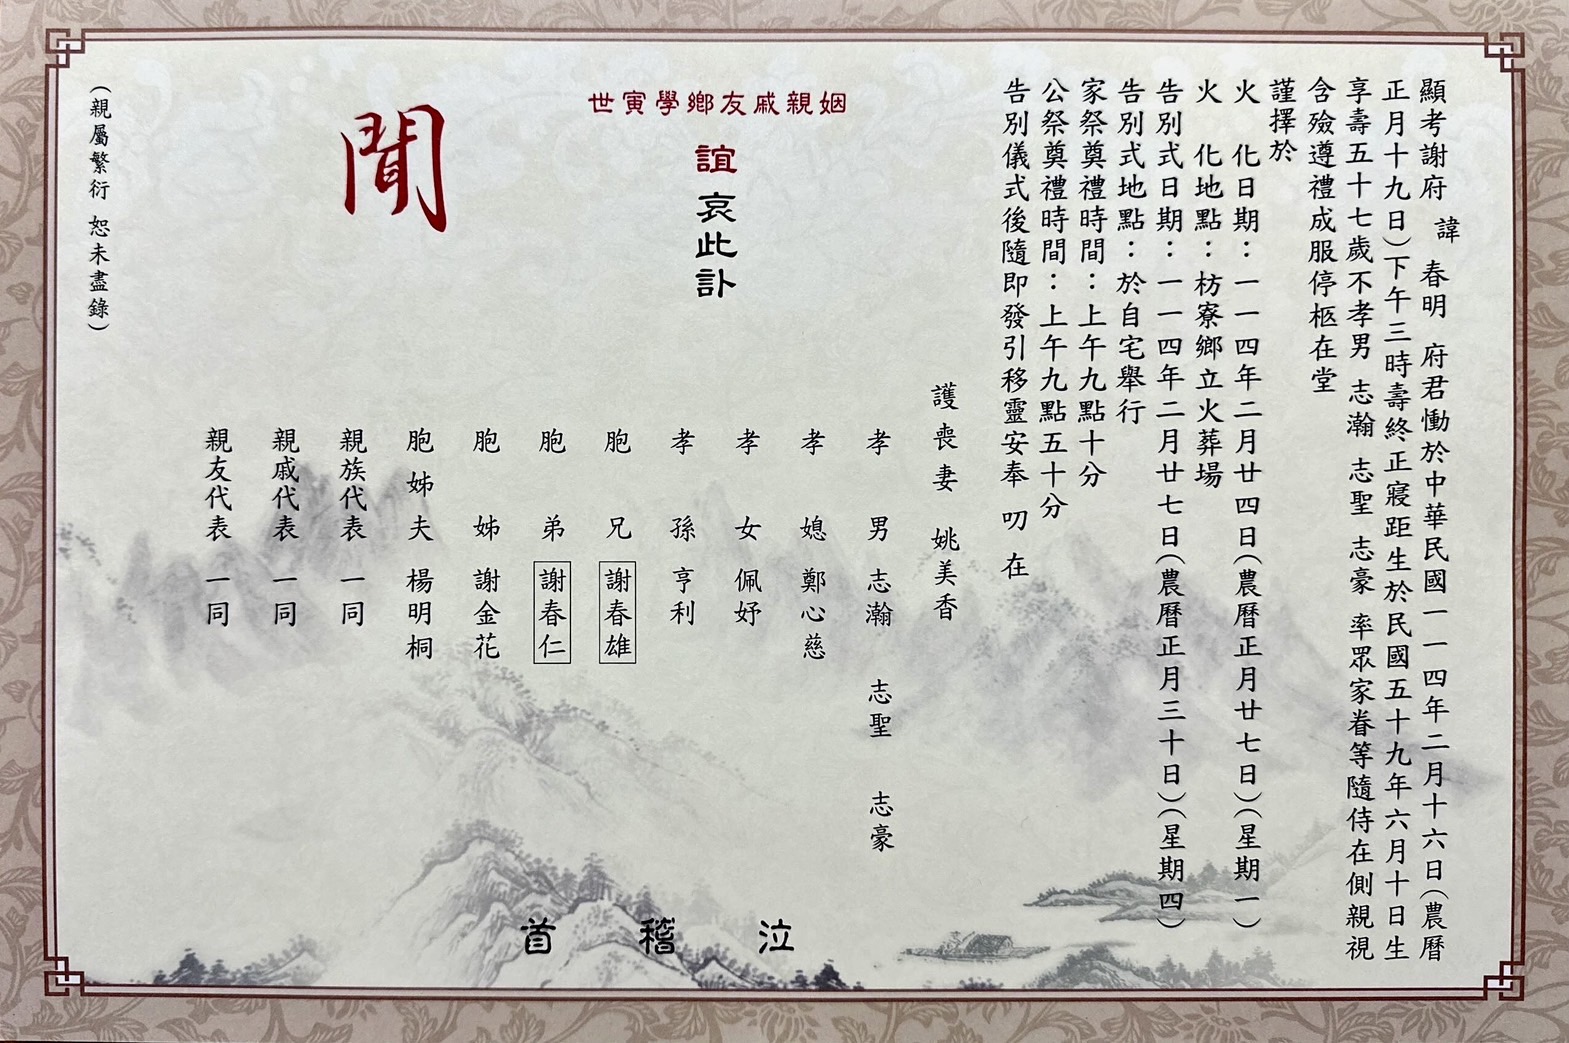 顯考謝府 諱 春明 府君慟於中華民國一一四年二月十六日(農曆
正月十九日)下午三時壽終正寢距生於民國五十九年六月十日生
享壽五十七歲不孝男 志瀚 志聖 志豪 率眾家眷等隨侍在側親視
含殮遵禮成服停柩在堂
謹擇於
火 化日期：一一四年二月廿四日(農曆正月廿七日)(星期一)
火 化地點：枋寮鄉立火葬場
告別式日期：一一四年二月廿七日(農曆正月三十日)(星期四)
告別式地點：於自宅舉行
家祭奠禮時間：上午九點十分
公祭奠禮時間：上午九點五十分
告別儀式後隨即發引移靈安奉 叨 在
姻親戚友鄉學寅世
誼哀此訃
聞
護喪妻 姚美香
孝男 志瀚 志聖 志豪
孝媳 鄭心慈
孝女 佩妤
孝孫 亨利
胞兄 謝春雄
胞弟 謝春仁
胞姊 謝金花
胞姊夫 楊明桐
親族代表 一同
親戚代表 一同
親友代表 一同
泣稽首
(親屬繁衍 恕未盡錄)